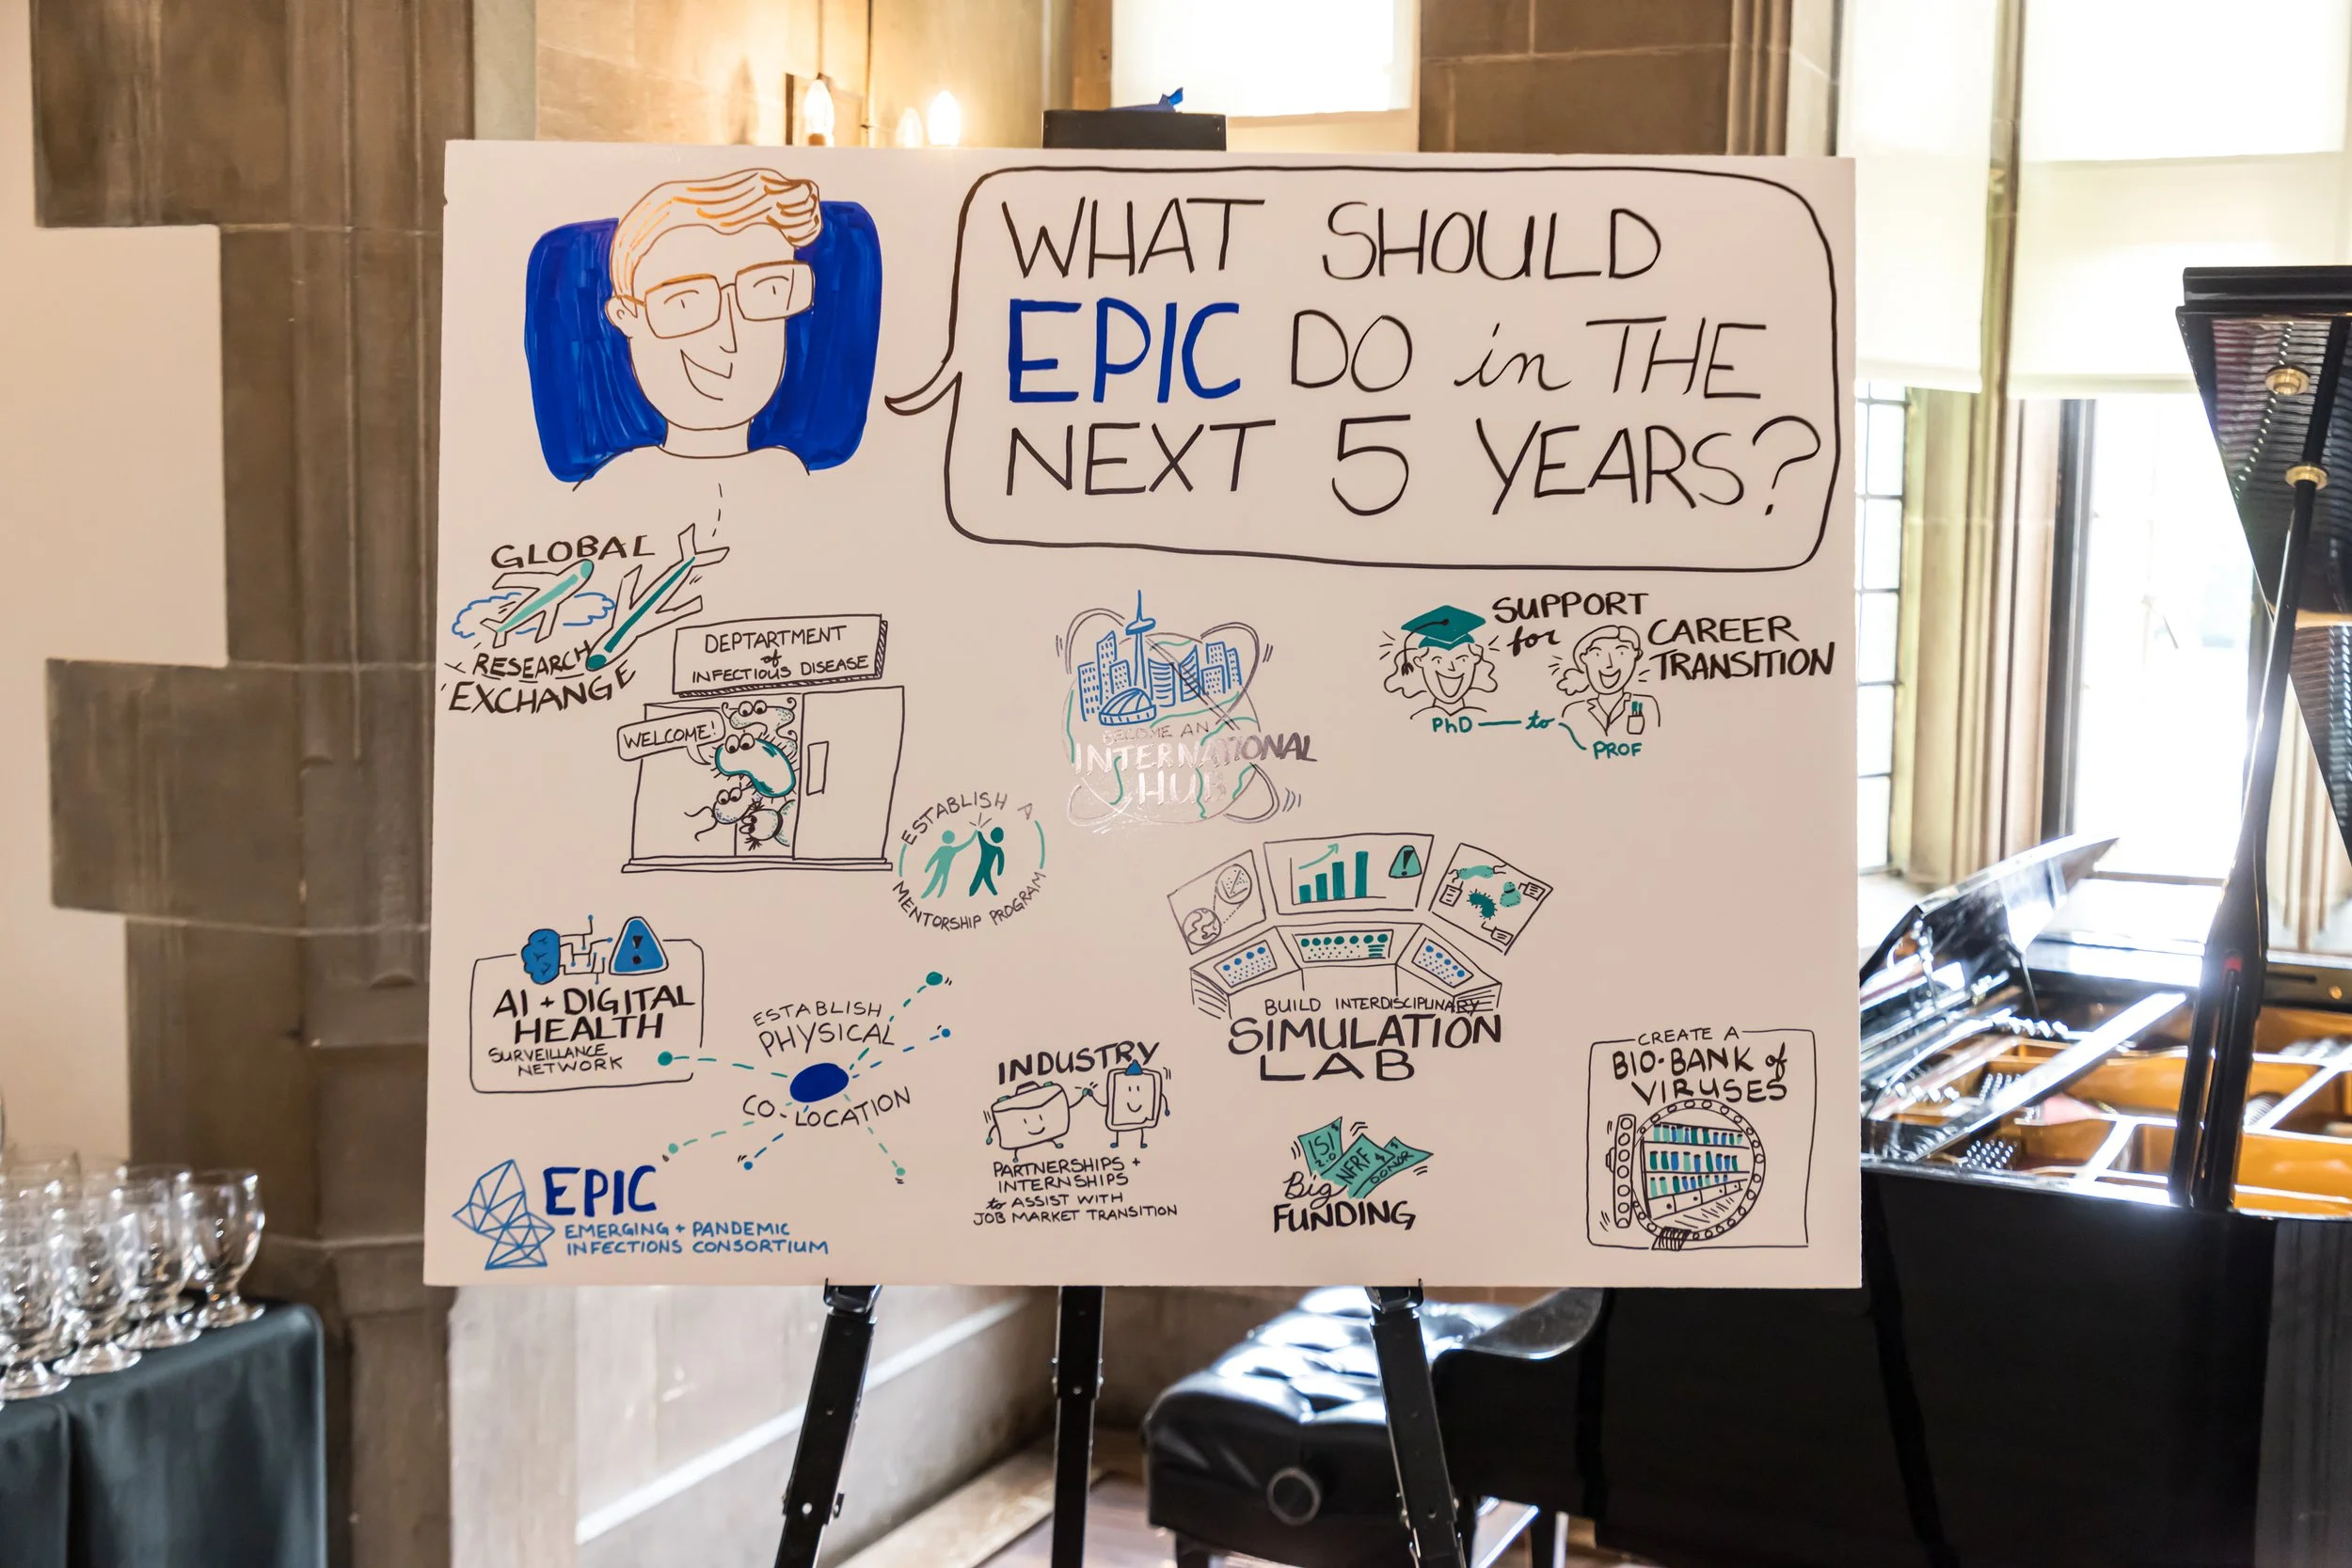 WHAT SHOULD
EPIC DO in THE
NEXT 5 YEARS?
GLOBAL
RESEARCH
EXCHANGE
DEPTARTMENT
of
INFECTIOUS DISEASE
WELCOME!
BECOME AN
INTERNATIONAL
HUB
SUPPORT
for
CAREER
TRANSITION
PhD to
PROF
ESTABLISH A
MENTORSHIP PROGRAM
AI + DIGITAL
HEALTH
SURVEILLANCE
NETWORK
ESTABLISH
PHYSICAL
CO-LOCATION
BUILD INTERDISCIPLINARY
SIMULATION
LAB
INDUSTRY
PARTNERSHIPS +
INTERNSHIPS
to ASSIST WITH
JOB MARKET TRANSITION
ISI
2.0
NFRF
$
DONOR
$
Big
FUNDING
CREATE A
BIO-BANK of
VIRUSES
EPIC
EMERGING + PANDEMIC
INFECTIONS CONSORTIUM